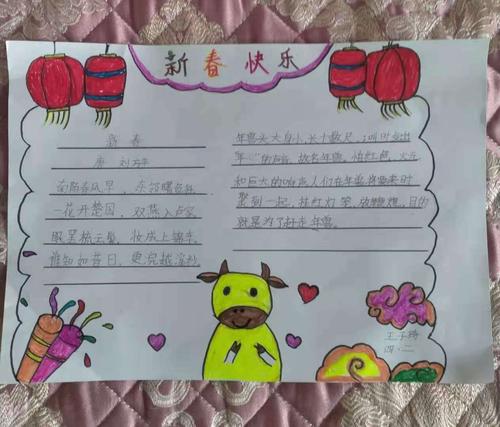 新春快乐
新春
唐 刘方平
南陌春风早，东邻曙色斜。
一花开楚国，双燕入卢家。
眠罢梳云髻，妆成上锦车。
谁知如昔日，更浣越溪纱。
年兽头大身小，长十数尺，
的声音，故名年兽，怕红色、火光
和巨大的响声人们在年兽将要来时
聚到一起，挂红灯笼，放鞭炮，目的
就是为了赶走年兽。
王子
四·二